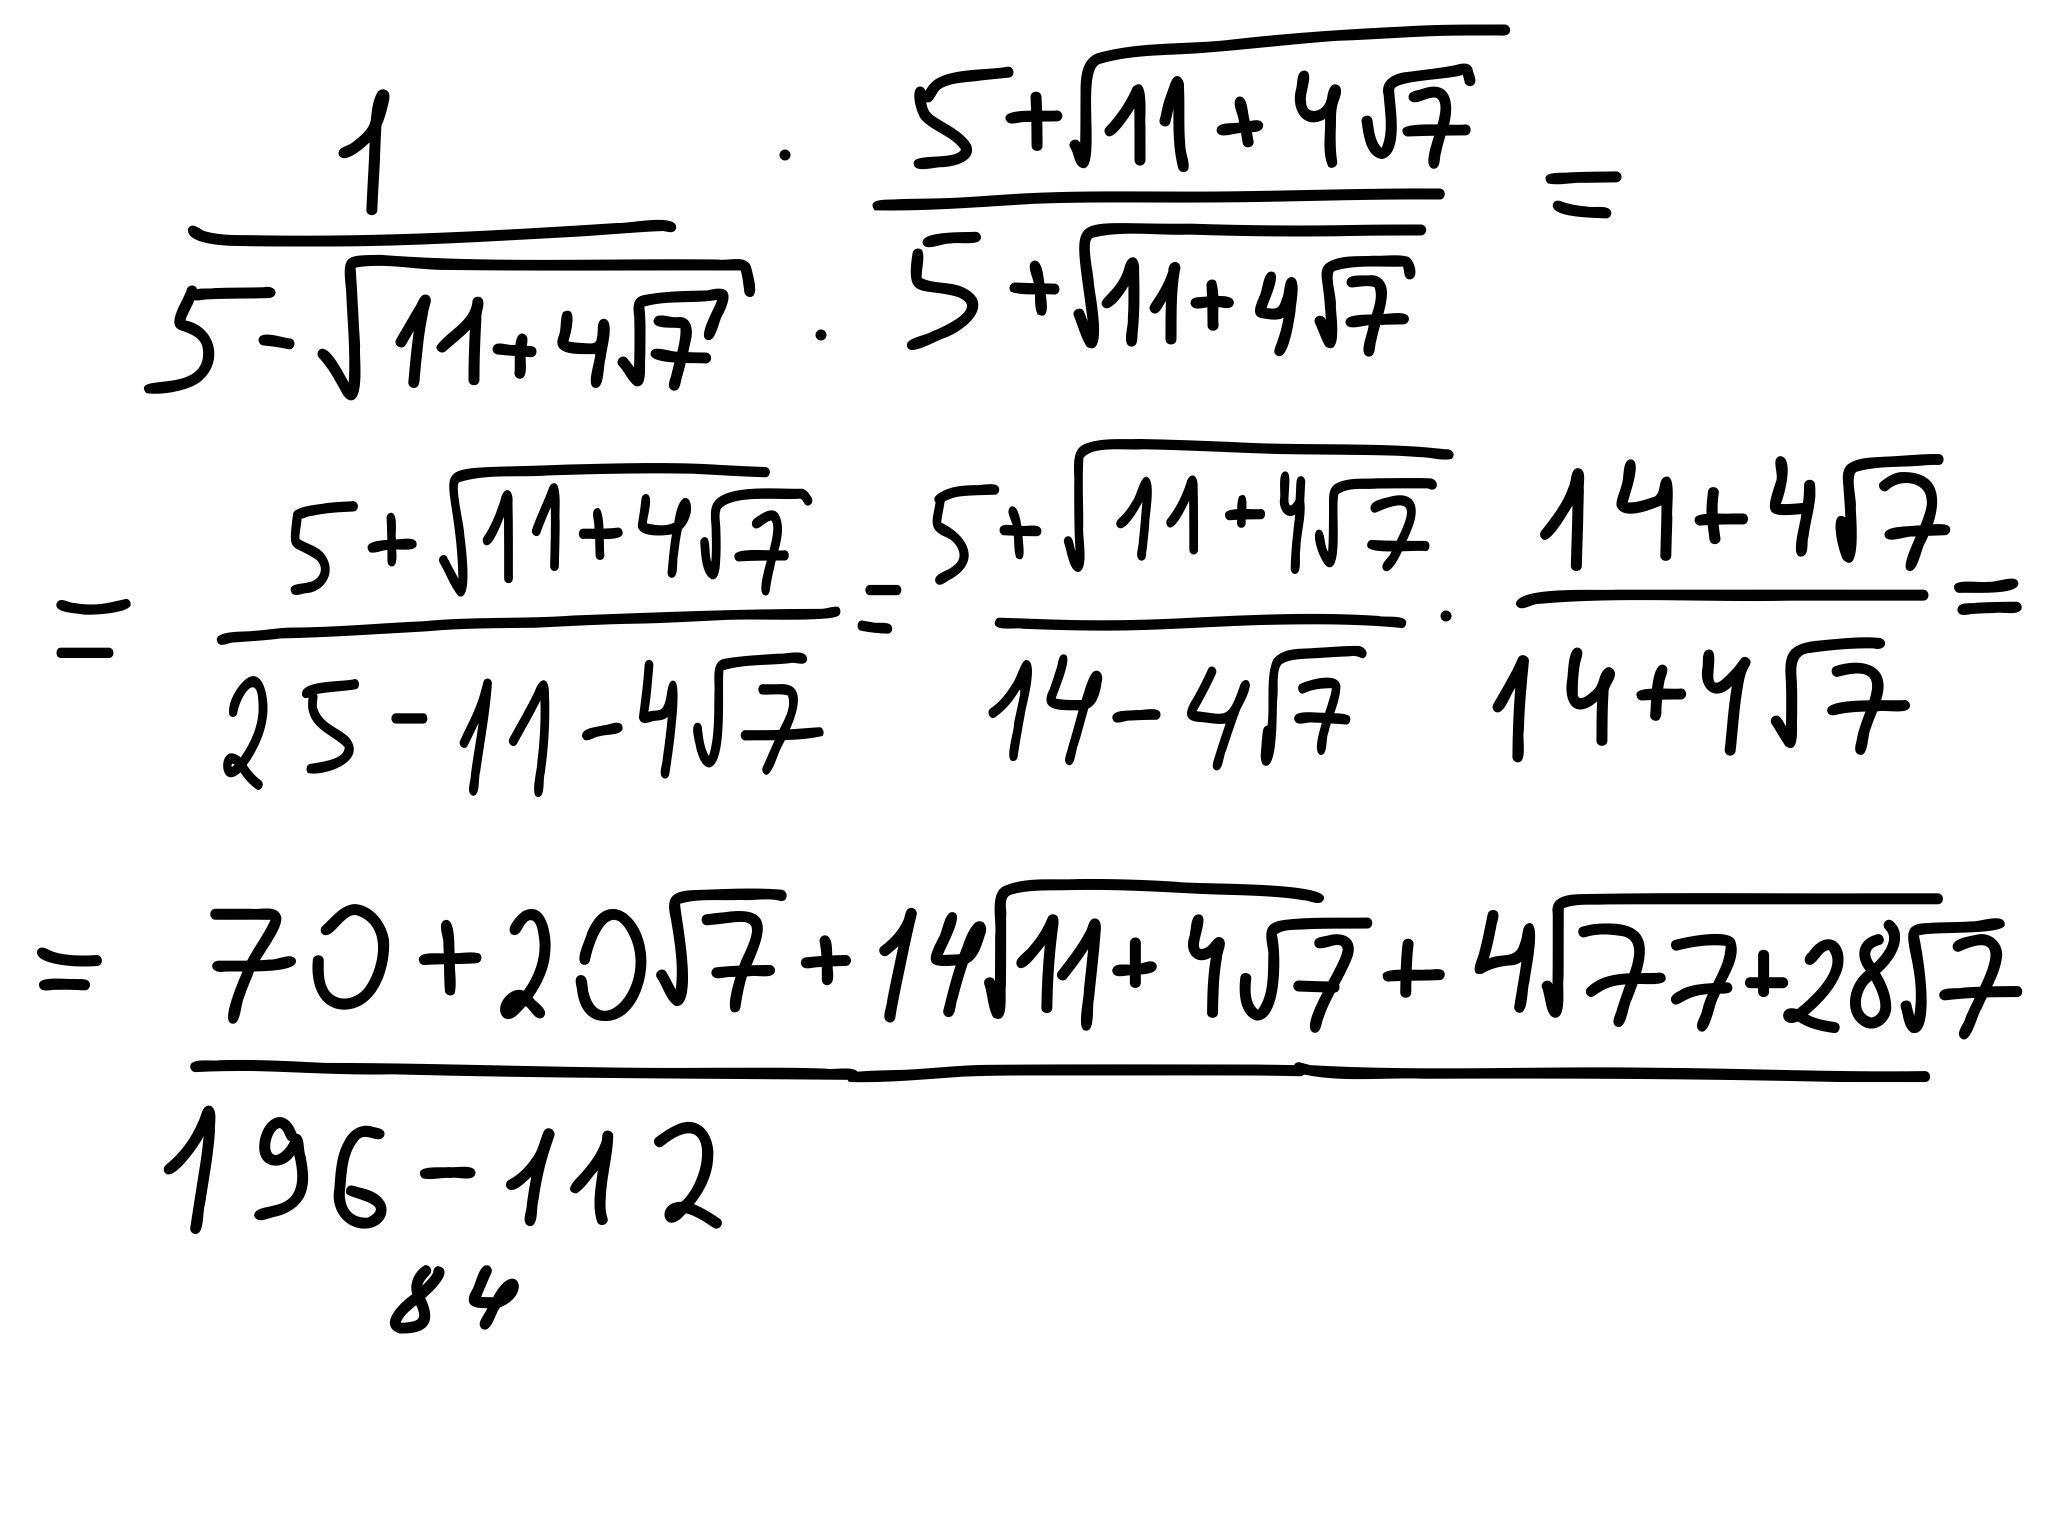 1/(5-√(11+4√7)) · (5+√(11+4√7))/(5+√(11+4√7)) =
= (5+√(11+4√7))/(25-11-4√7) = (5+√(11+4√7))/(14-4√7) · (14+4√7)/(14+4√7) =
= (70+20√7+14√(11+4√7)+4√(77+28√7))/(196-112)
84